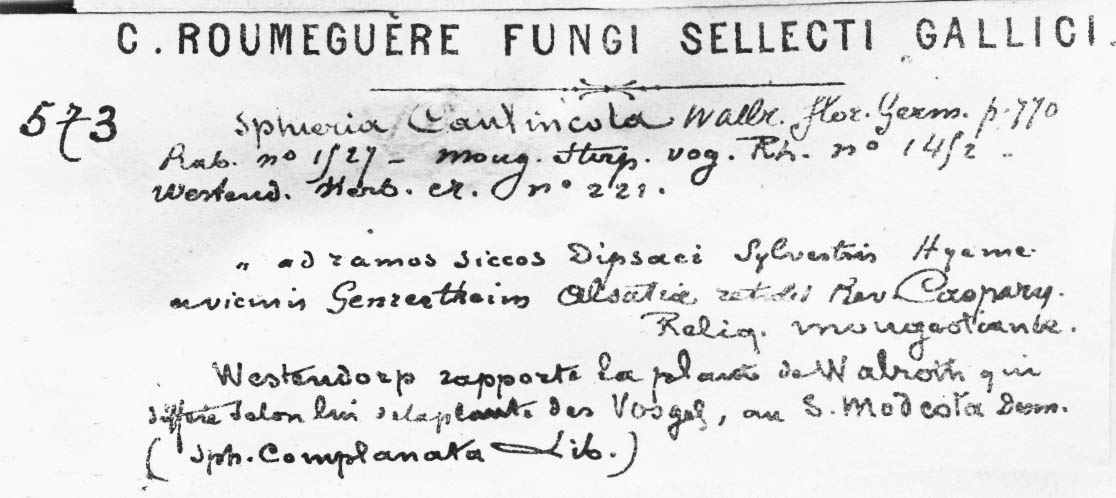 C. ROUMEGUÈRE FUNGI SELLECTI GALLICI.
573 Sphæria Caulincola Wallr. Flor. Germ. p. 770
Rab. no 1527 - Moug. Stirp. vog. Rh. no 1452 -
Westend. Herb. cr. no 221.
„ ad ramos siccos Dipsaci Sylvestris Hyeme
Alsatiæ Rev. Caspary.
Reliq. mougeotianæ.
Westendorp rapporte la plante de Walroth qui
differe selon lui de la plante des Vosges, au S. Modesta Desm.
(Sph. Complanata Lib.)